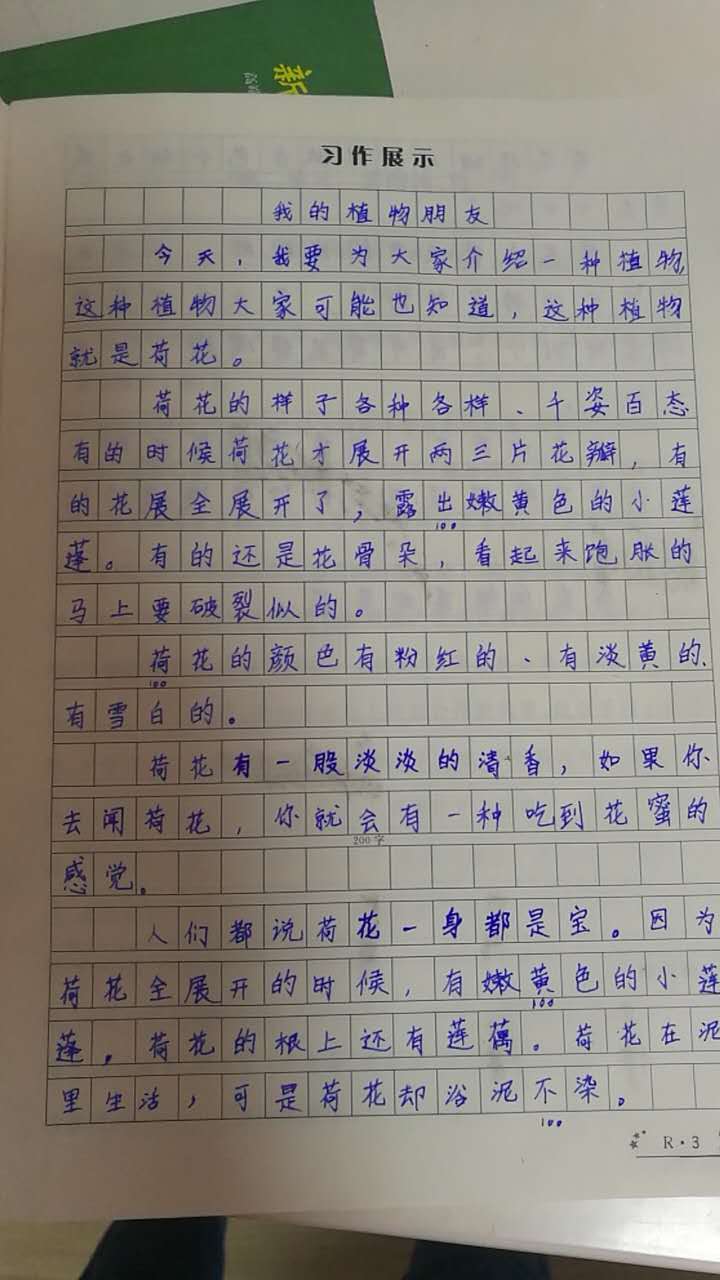 新
习作展示
我的植物朋友
今天，我要为大家介绍一种植物，
这种植物大家可能也知道，这种植物
就是荷花。
荷花的样子各种各样、千姿百态
有的时候荷花才展开两三片花瓣，有
的花展全展开了，露出嫩黄色的小莲
100
蓬。有的还是花骨朵，看起来饱胀的
马上要破裂似的。
荷花的颜色有粉红的、有淡黄的、
100
有雪白的。
荷花有一股淡淡的清香，如果你
去闻荷花，你就会有一种吃到花蜜的
200字
感觉。
人们都说荷花一身都是宝。因为
荷花全展开的时候，有嫩黄色的小莲
100
蓬，荷花的根上还有莲藕。荷花在泥
里生活，可是荷花却浴泥不染。
100
R·3